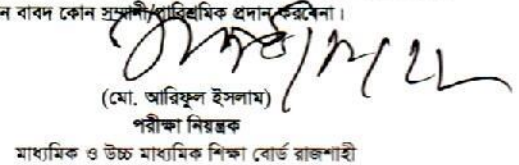 ন বাবদ কোন সম্মানী/পারিশ্রমিক প্রদান করবেনা।
(মো. আরিফুল ইসলাম)
পরীক্ষা নিয়ন্ত্রক
মাধ্যমিক ও উচ্চ মাধ্যমিক শিক্ষা বোর্ড রাজশাহী